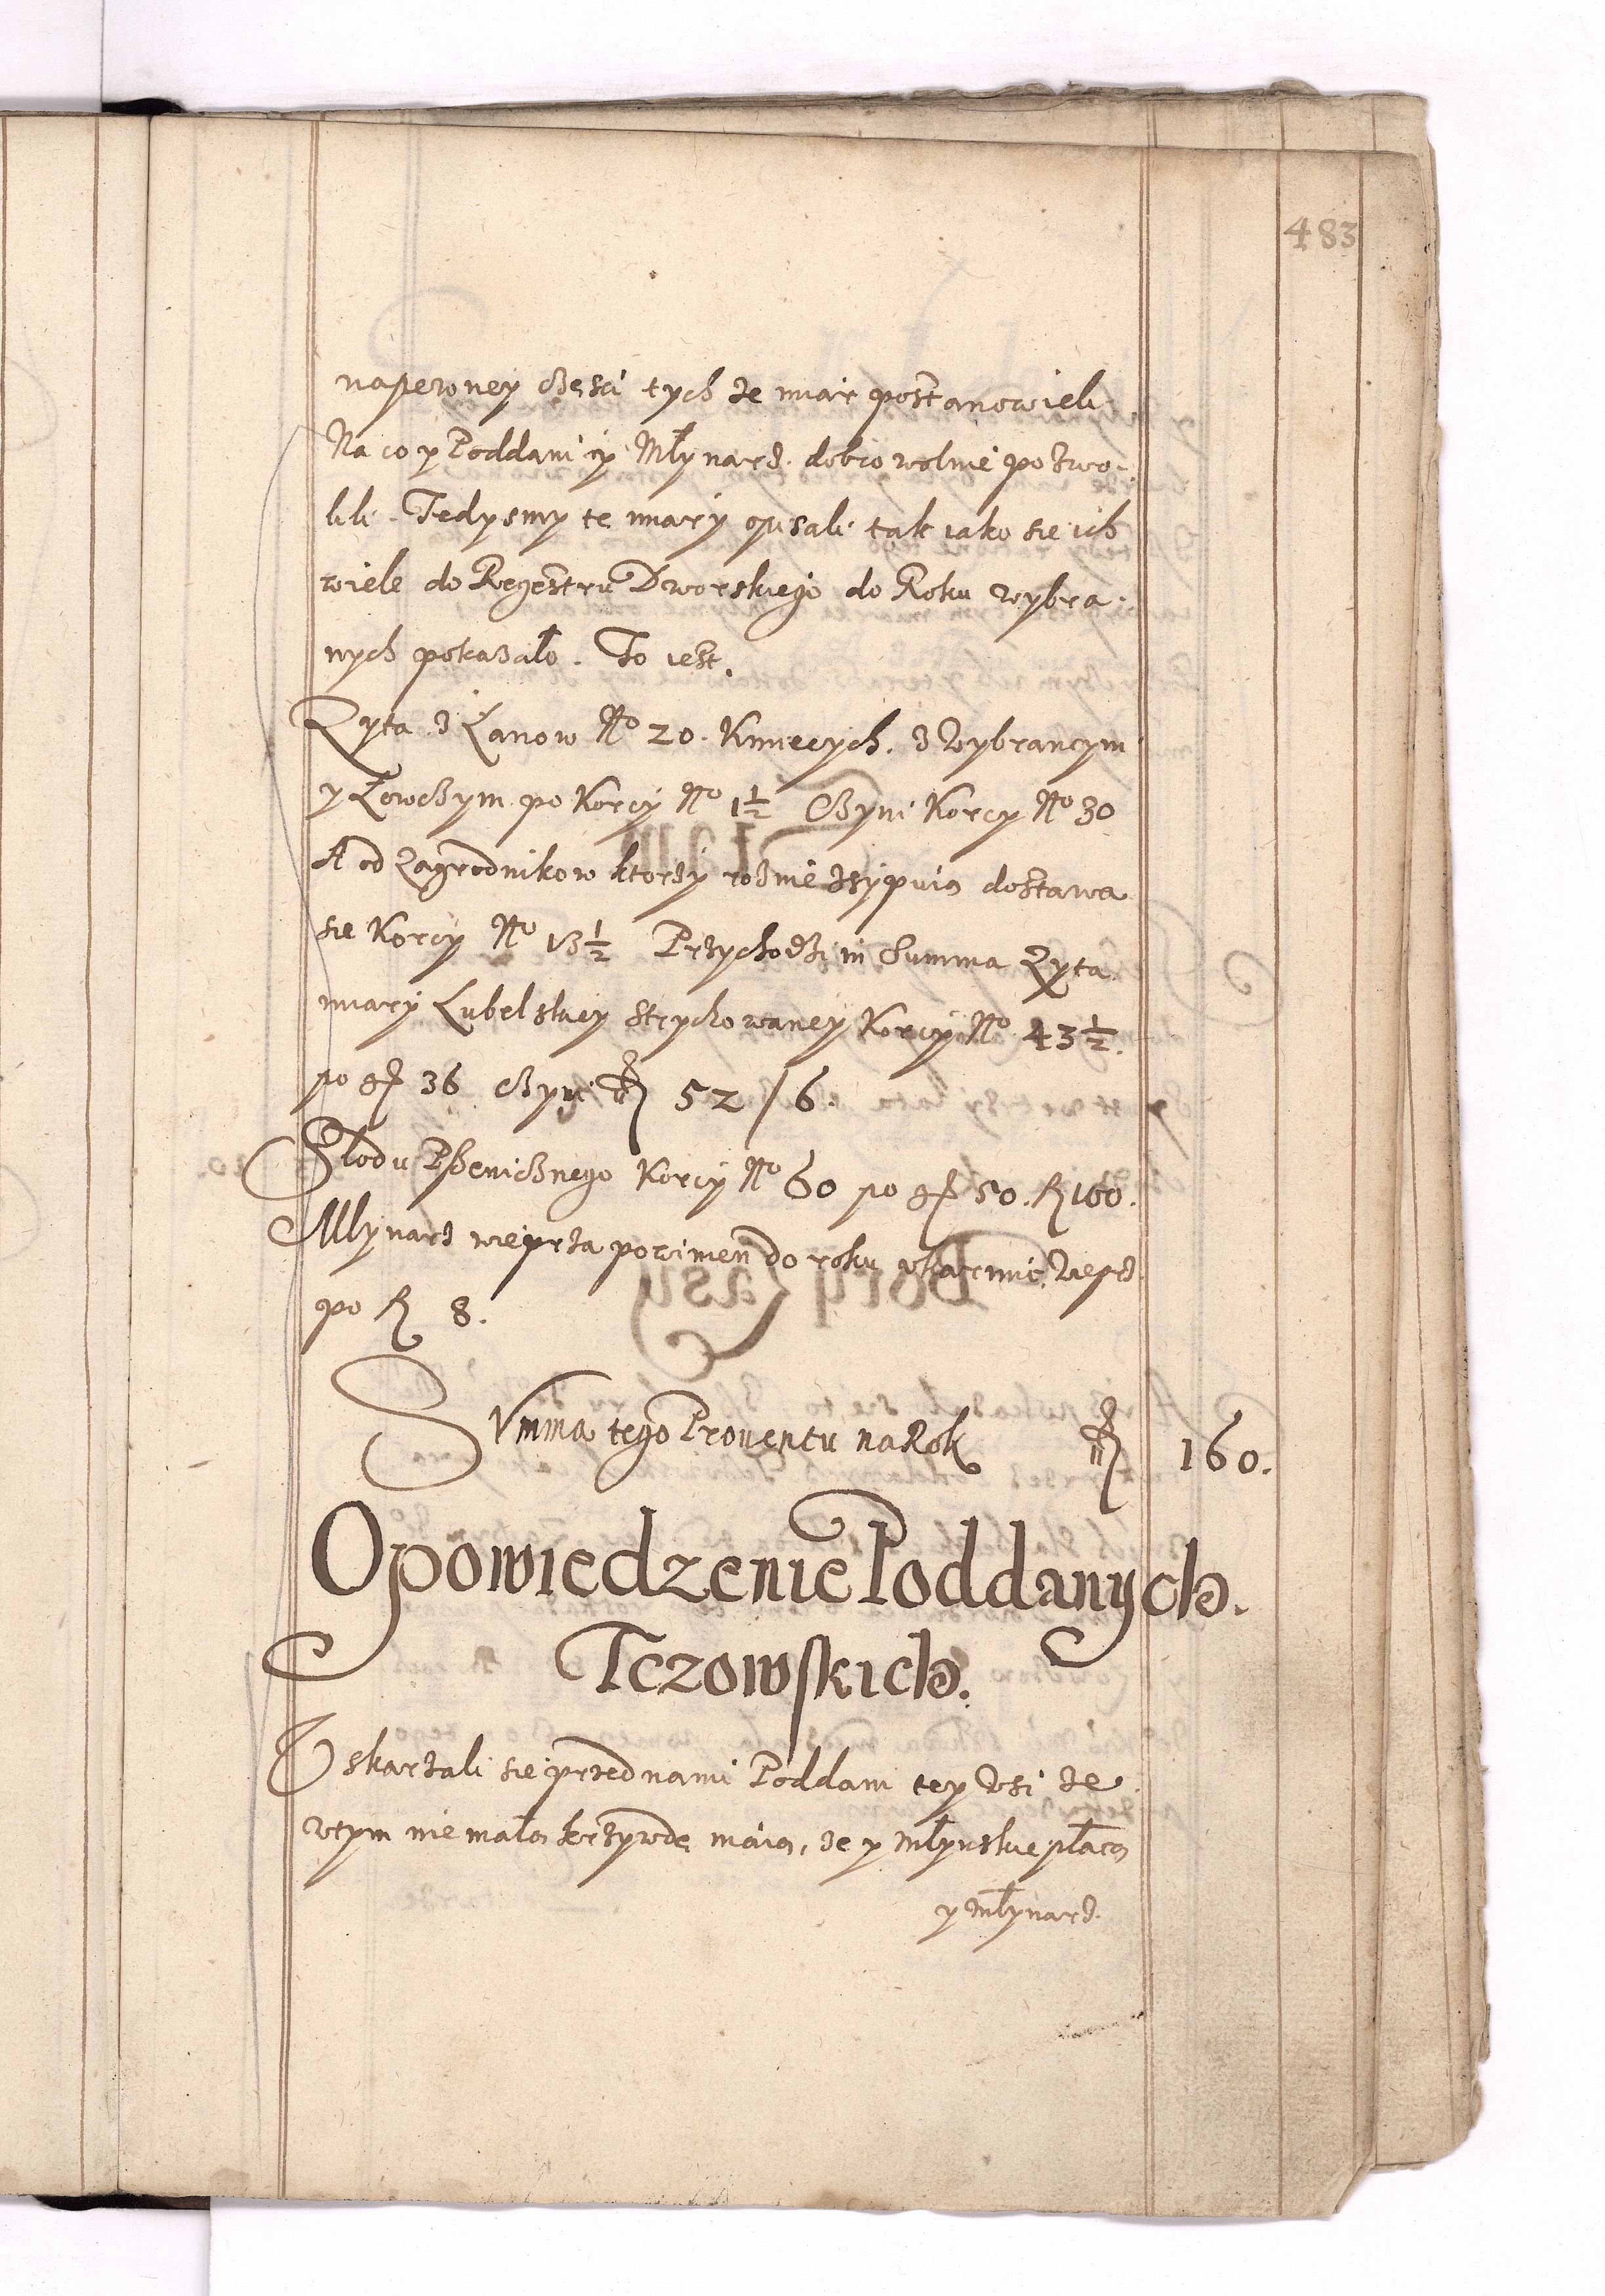 483
napewney części tych że miar postanowieli
Na co y Poddani y Młynarz dobrowolnie pozwo-
lili. Tedysmy te miary opisali tak iako sie ich
wiele do Regestru Dworskiego do Roku wybra-
nych pokazało. To iest.
Zyta z Łanow No 20. Kmiecych. z Wybrancym
y Łowczym po Korcy No 1½ Czyni Korcy No 30
A od Zagrodnikow ktorzy rożnie zsypuią dostawa
sie Korcy No 13½ Przychodzi in Summa Zyta
miary Lubelskiey strychowaney Korcy No 43½.
po gr 36 Czyni fl 52/6.
Słodu Pszenicznego Korcy No 60 po gr 50. fl 100.
Młynarz wieprza powinien do roku ukarmić Wieprz
po fl 8.
SVmma tego Prouentu na Rok fl 160.
Opowiedzenie Poddanych.
Tczowskich.
Uskarżali sie przed nami Poddani tey Wsi że
wtym nie małą krzywdę maią, że y młyńskie płacą
y młynarz